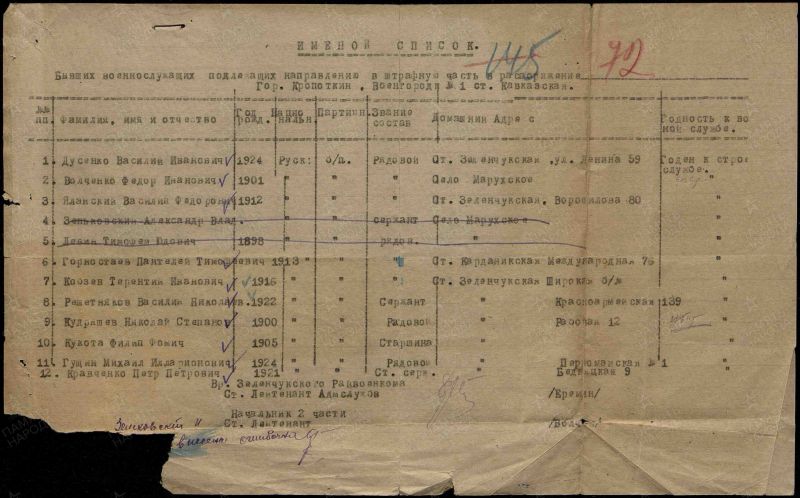 ИМЕНОЙ СПИСОК.
145 72
Бывших военнослужащих подлежащих направлению в штрафную часть в распоряжение
Гор. Кропоткин , Военгородк № 1 ст. Кавказская.
№№ пп. Фамилия, имя и отчество Год рожд. Нацио нальн. Партийн. Звание состав Домашнии Адре с Годность к во ной службе.
1. Дусенко Василий Иванович 1924 Руск: б/п. рядовой Ст. Зеленчукская ,ул. Ленина 59 Годен к строе службе.
2. Волченко Федор Иванович 1901 " " " Село Марухское "
3. Яланский Василий Федорович 1912 " " " Ст. Зеленчукская, Воросилова 80 "
4. Зеньковский Александр Влад. " " сержант Село Марухское "
5. Левин Тимофей Юлович 1898 " " рядов. " "
6. Горностаев Пантелей Тимофеевич 1913 " " " Ст. Карданикская Международная 76 "
7. Козев Терентий Иванович 1916 " " " Ст. Зеленчукская Широкая б/№ "
8. Решетняков Василий Николаев. 1922 " " Сержант " Красноармейская 139 "
9. Кудряшев Николай Степанов 1900 " " Рядовой " Рабочая 12 "
10. Кукота Филип Фомич 1905 " " Старшина " " "
11. Гущин Михаил Илларионович 1924 " " Рядовой " Первомайская №1 "
12. Кравченко Петр Петрович 1921 " " Ст. серж. " Бедняцкая 9 "
Вр. Зеленчукского Райвоенкома
Ст. Лейтенант Адмслужов /Еремин/
Начальник 2 части
Ст. Лейтенант
Зеньковский "
внесен ошибочно